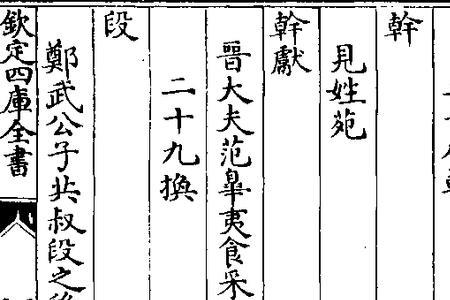 幹
見姓苑
幹獻
晉大夫范皐夷食采
二十九換
段
鄭武公子共叔段之後
欽定四庫全書